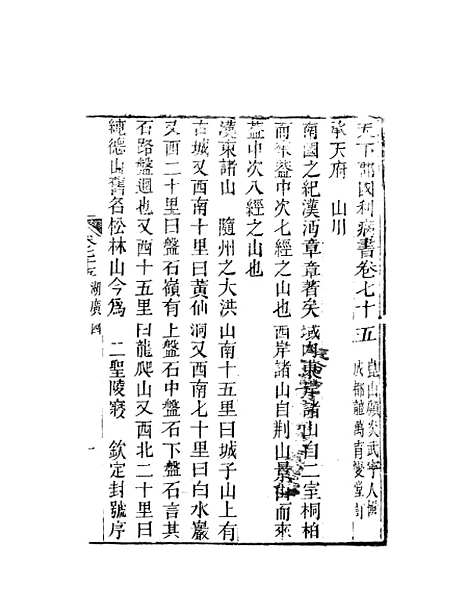 天下郡國利病書卷七十五
崑山顧炎武寧人輯
成都龍萬育燮堂訂
承天府 山川
南國之紀漢沔章章著矣域內東岸諸山自二室桐柏
而來蓋中次七經之山也西岸諸山自荆山景山而來
蓋中次八經之山也
漢東諸山 隨州之大洪山南十五里曰城子山上有
古城又西南十里曰黃仙洞又西南七十里曰白水巖
又西二十里曰盤石嶺有上盤石中盤石下盤石言其
石路盤迴也又西十五里曰龍爬山又西北二十里曰
純德山舊名松林山今爲 二聖陵寢 欽定封號序
卷七十五 湖廣四
一